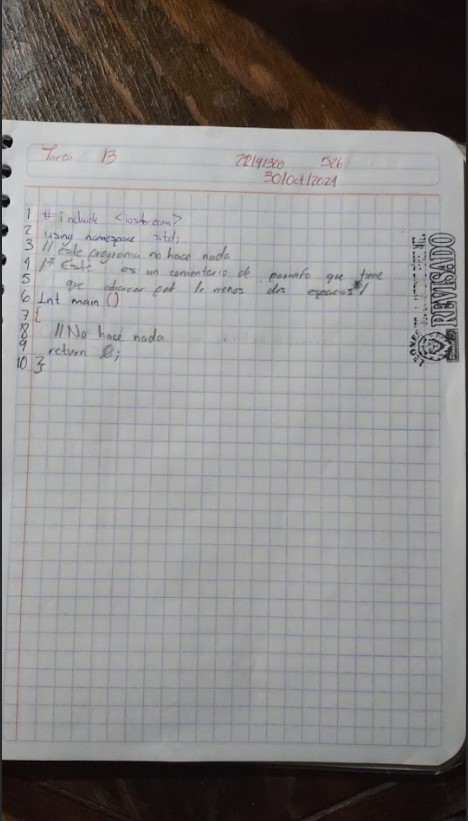 Tarea 13
22191320 526
30/Oct/2024
1 # include <iostream>
2 using namespace std;
3 // Este programa no hace nada
4 /* Este es un comentario de parrafo que tiene
5 que abarcar por lo menos dos espacios */
6 Int main ()
7 {
8 // No hace nada
9 return 0;
10 }
REVISADO